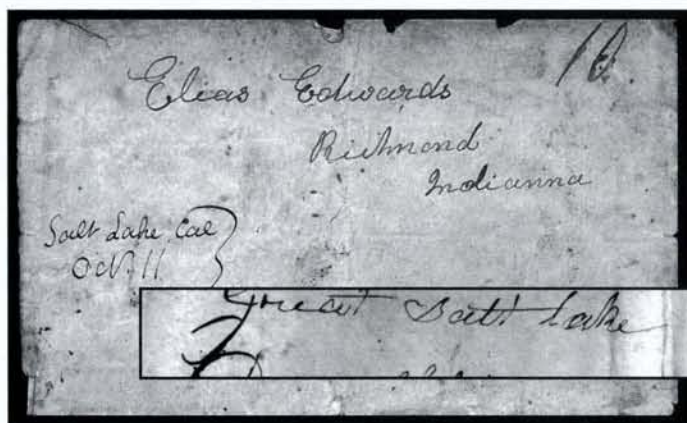 10
Elias Edwards
Richmond
Indianna
Salt Lake Cal
Oct. 11
Great Salt Lake